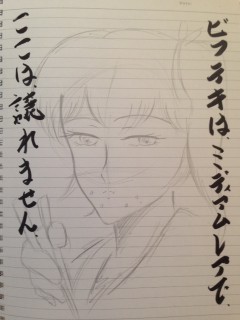 ビフテキは、ミディアムレアで、
ここは、譲れません。